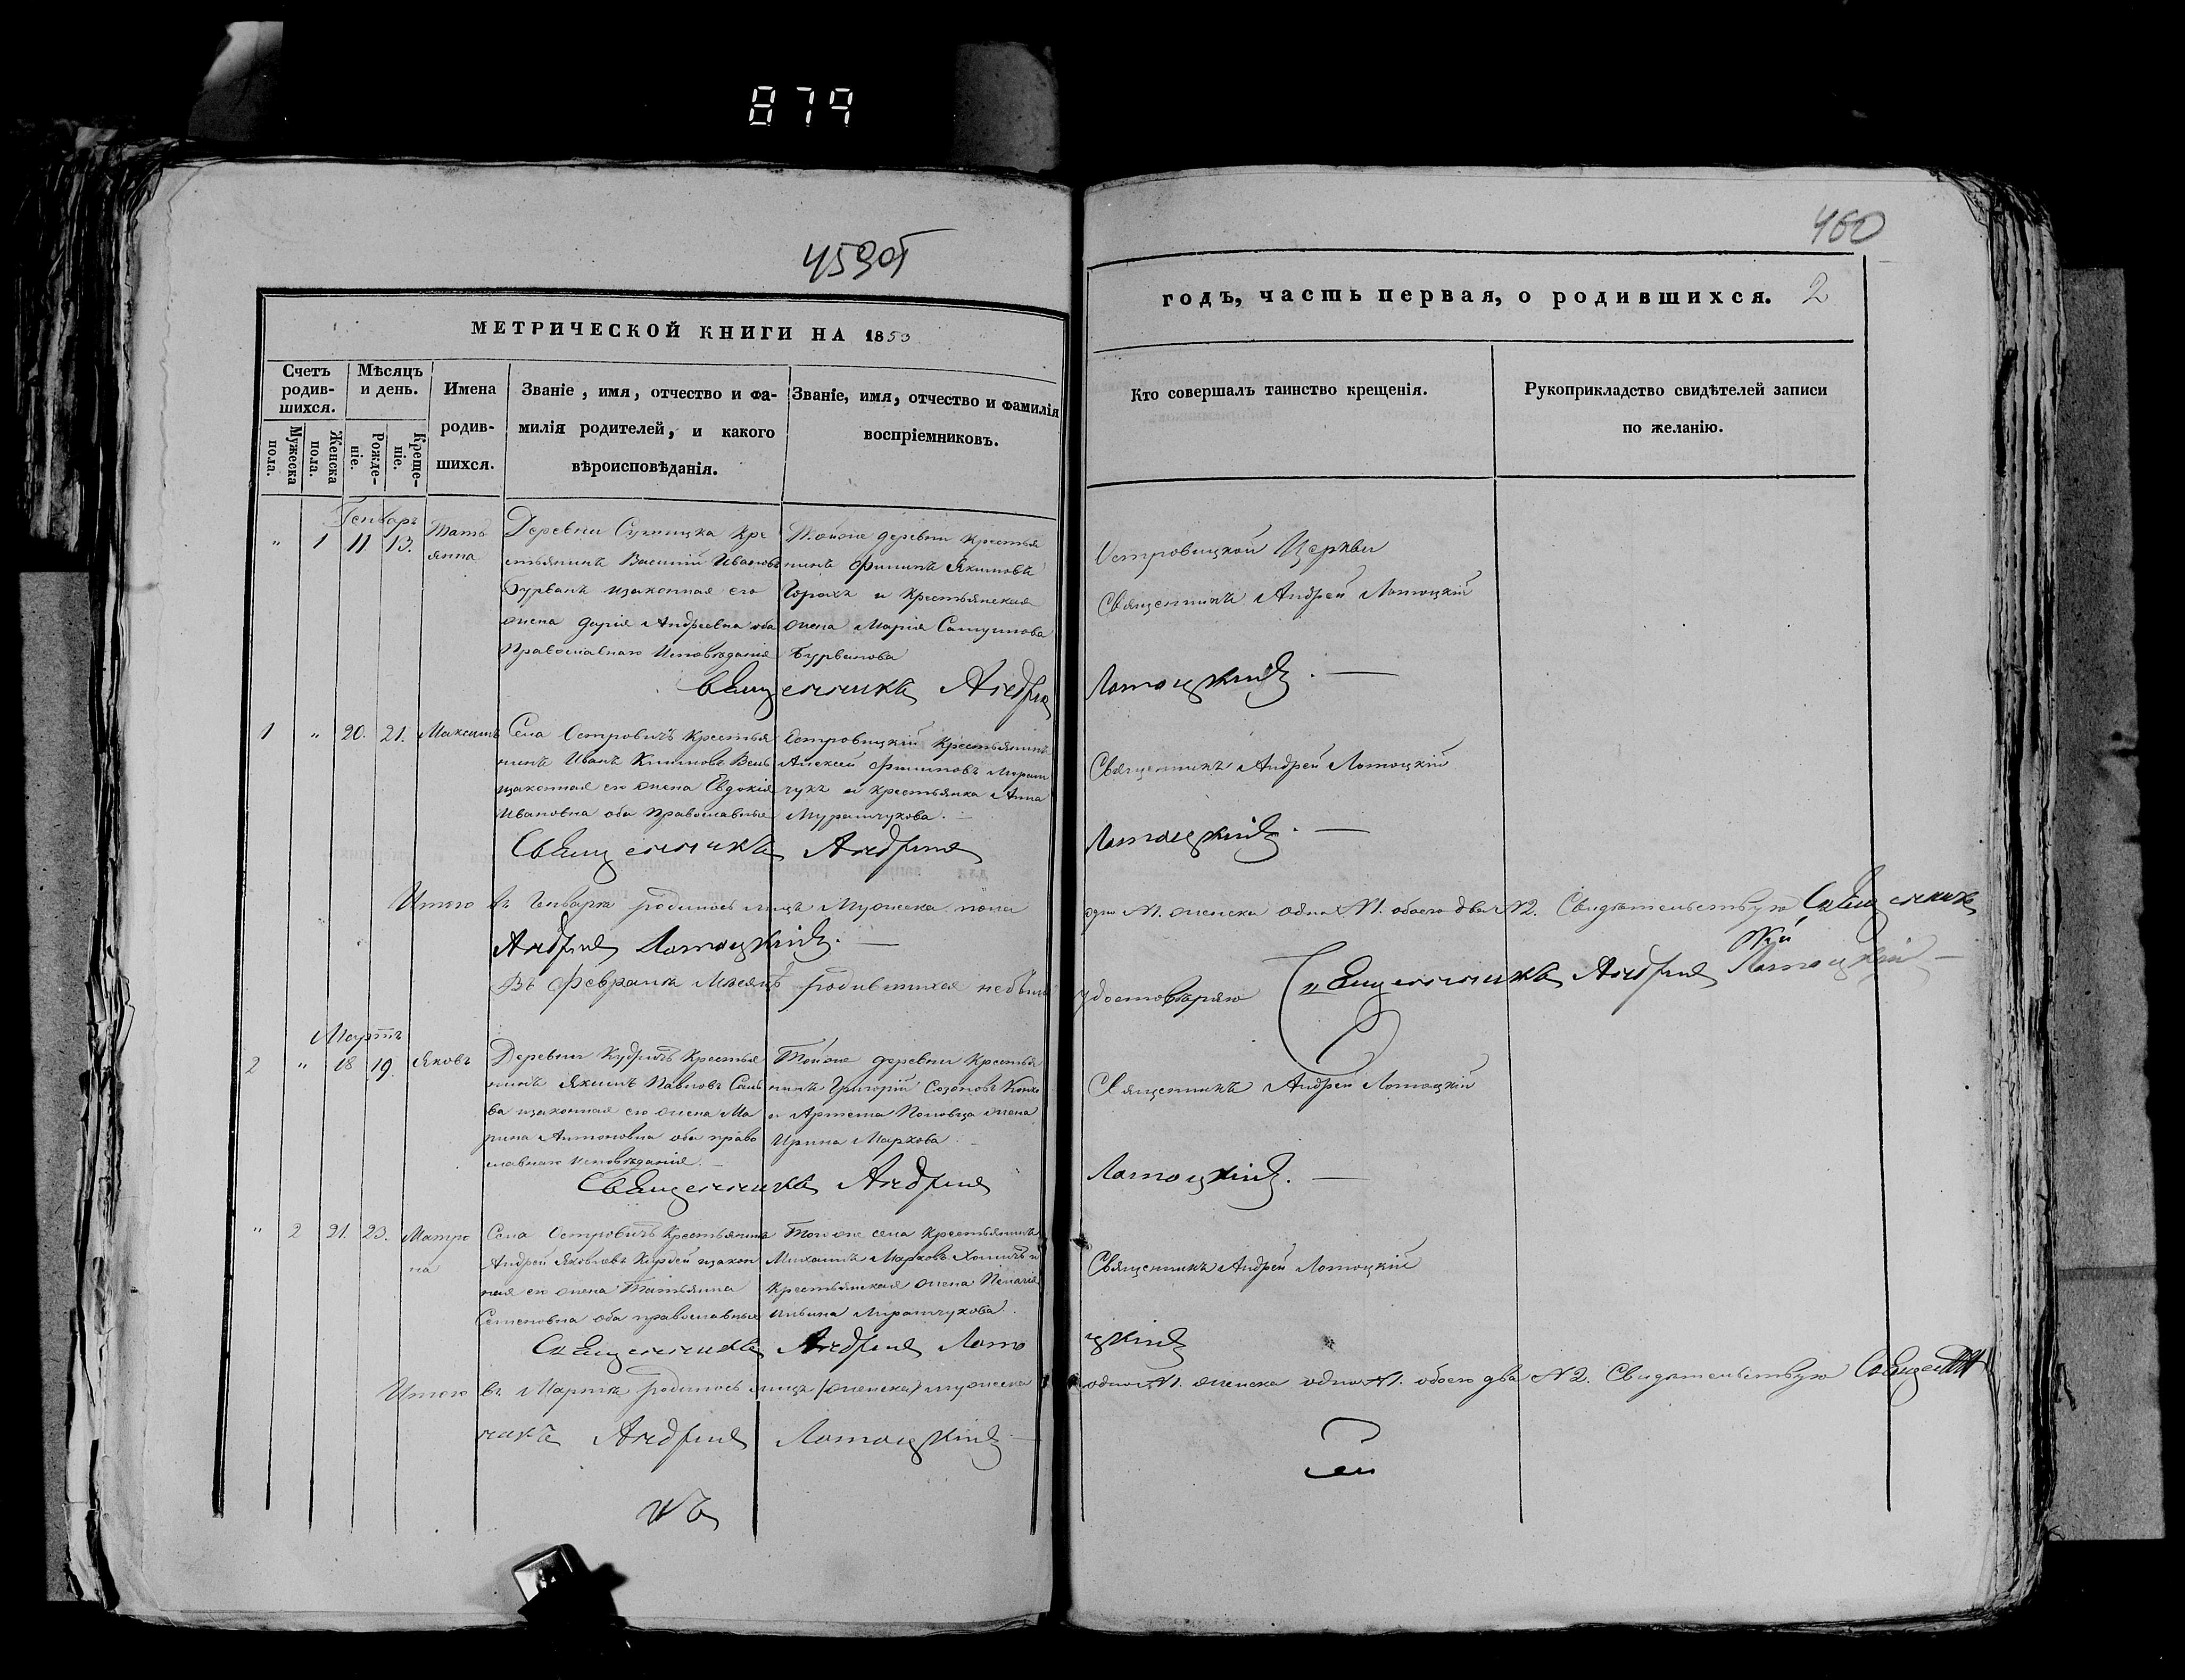 879
459об
460
МЕТРИЧЕСКОЙ КНИГИ НА 1853
годъ, часть первая, о родившихся. 2
Счетъ родив-шихся.
Мѣсяцъ и день.
Мужеска пола.
Женска пола.
Рожде-ніе.
Креще-ніе.
Имена родив-шихся.
Званіе, имя, отчество и фа-
милія родителей, и какого
вѣроисповѣданія.
Званіе, имя, отчество и фамилія
воспріемниковъ.
Кто совершалъ таинство крещенія.
Рукоприкладство свидѣтелей записи
по желанію.
Генварь
" 1 11 13.
Тать
янна
Деревни Кре
стьянинъ Василій Ивановъ
Бурванъ изаконная его
жена Дарія Андреевна оба
Православнаго Исповѣданія
Тойже деревни крестья
нинъ Филипъ Якимовъ
и Крестьянская
жена Марія
Бурванова
Островицкой Церкви
Священникъ Андрей Лотоцкій
Священникъ Андрей
Лотоцкій. —
1 " 20. 21. Максимъ
Села Островичъ Крестья
нинъ Иванъ Климовъ
изаконная его жена Евдокія
Ивановна оба Православные
Островицкій Крестьянинъ
Алексей Филиповъ Мураш
чукъ и крестьянка Анна
Мурашчукова. —
Священникъ Андрей Лотоцкій
Священникъ Андрей
Лотоцкій. —
Итого въ Генварѣ родилось лицъ Мужеска пола
одно №1. женска одна №1. обоего два №2. Свидѣтельствую Священникъ
Андрей Лотоцкій. —
Въ Февралѣ Мѣсяцѣ родившихся небыло
удостовѣряю Священникъ Андрей Лотоцкій —
Мартъ
2 " 18 19. Яковъ
Деревни Кудричъ Крестья
нинъ Якимъ Павловъ
ва изаконная его жена Ма
рина Антоновна оба право
славнаго исповѣданія. —
Тойже деревни Крестья
нинъ Григорій Созоновъ
и Артема Поповца жена
Ирина Маркова. —
Священникъ Андрей Лотоцкій
Священникъ Андрей
Лотоцкій. —
" 2 21. 23. Матро
на
Села Островичъ Крестьянинъ
Андрей Яковлевъ изакон
ная его жена Татьянна
Семеновна оба православные
Тогоже села Крестьянинъ
Михаилъ Марковъ Хомичъ и
Крестьянская жена Пелагія
Ильина Мурашчукова.
Священникъ Андрей Лотоцкій
Священникъ Андрей Лото
цкій
Итого въ Мартѣ родилось лицъ (женска) мужеска
одно №1. женска одно №1. обоего два №2. Свидѣтельствую Священ
никъ Андрей Лотоцкій —